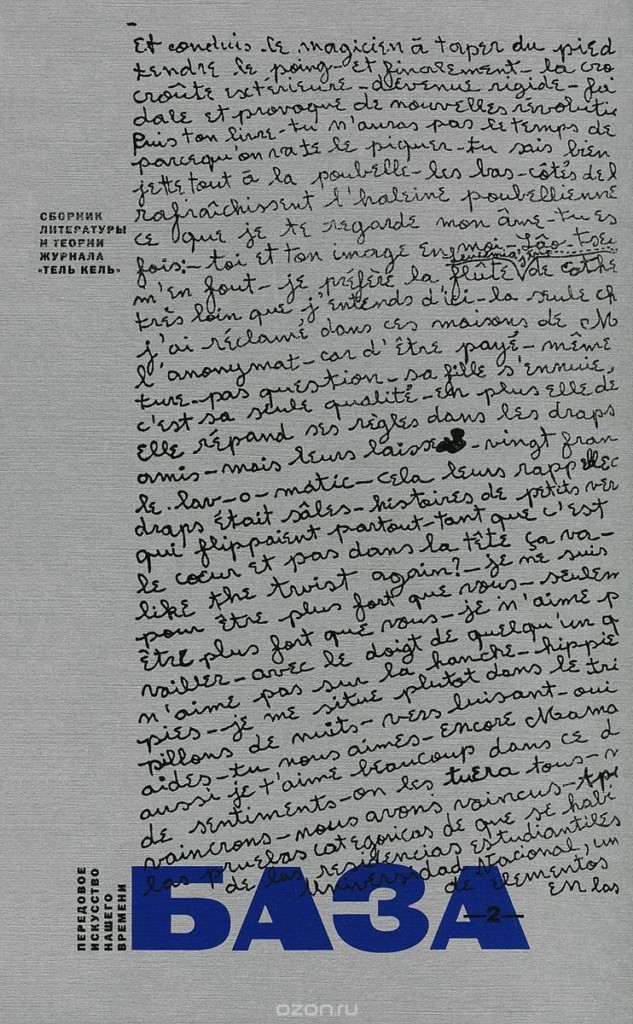 Et conduis le magicien à taper du pied
tendre le poing - et finalement - la cro
croûte extérieure - devenue rigide - fai
dale et provoque de nouvelles révolutio
Puis ton livre - tu n'auras pas le temps de
parcequ'on va te le piquer - tu sais bien
jette tout à la poubelle - les bas-côtés de l
rafraîchissent l'haleine poubellienne
ce que je te regarde mon âme - tu es
СБОРНИК
ЛИТЕРАТУРЫ
И ТЕОРИИ
ЖУРНАЛА
«ТЕЛЬ КЕЛЬ»
fois: - toi et ton image en moi - Lao-tseu
m'en fout - je préfère la flûte de
très loin que j'entends d'ici - la seule ch
j'ai réclamé dans ces maisons de M
l'anonymat - car d'être payé - même
ture - pas question - sa fille s'ennuie,
c'est sa seule qualité - en plus elle de
elle répand ses règles dans les draps
amis - mais leurs laisse - vingt fran
le lav-o-matic - cela leurs rappelle
draps était sâles - histoires de petits ver
qui flippaient partout - tant que c'est
le cœur et pas dans la tête ça va -
like the twist again? - je ne suis
pour être plus fort que vous - seulem
être plus fort que vous - je n'aime p
vailler - avec le doigt de quelqu'un q
n'aime pas sur la hanche - hippie
pies - je me situe plutot dans le tri
pillons de nuits - vers luisant - oui
aides - tu nous aimes - encore Mama
aussi je t'aime beaucoup dans ce d
de sentiments - on les tuera tous - n
vaincrons - nous avons vaincus -
las pruebas categoricas de que se habi
de las residencias estudiantiles
Universidad Nacional, un
de elementos
en las
ПЕРЕДОВОЕ
ИСКУССТВО
НАШЕГО
ВРЕМЕНИ
БАЗА
—2—
ozon.ru